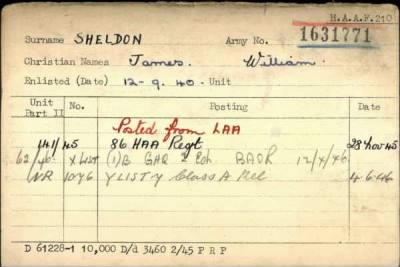 H.A.A.F. 210
Surname SHELDON Army No. 1631771
Christian Names James. William.
Enlisted (Date) 12-9.40. Unit
Unit Part II No. Posting Date
Posted from LAA
141/45 86 HAA Regt 28 Nov 45
62/46 X LIST (1)B GHQ 2 Ech BAOR 12/4/46
NR 1076 Y LIST Class A Rel 4.6.46
D 61228-1 10,000 D/d 3460 2/45 P R P